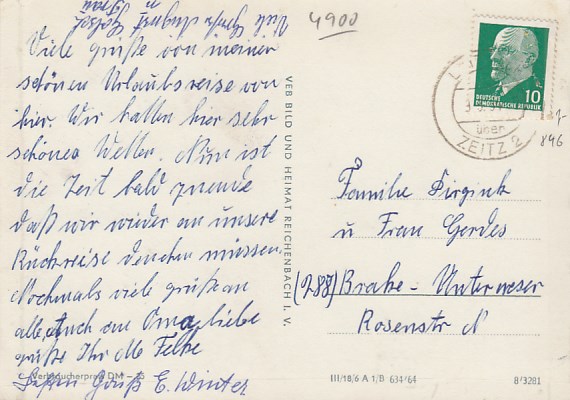 Viele grüße von meiner
schönen Urlaubsreise von
hier. Wir hatten hier sehr
schönes Wetter. Nun ist
die Zeit bald zuende
daß wir wieder an unsere
Rückreise denken müssen.
Nochmals viele grüße an
alle, Auch an Oma, liebe
grüße Ihr
Gruß E. Winter
Auch
u Frau
4900
VEB BILD UND HEIMAT REICHENBACH I. V.
10
DEUTSCHE
DEMOKRATISCHE REPUBLIK
über
ZEITZ 2
846
Familie
u Frau Gerdes
(288) Brake - Unterweser
Rosenstr
Verbraucherpreis DM
III/18/6 A 1/B 634/64
8/3281